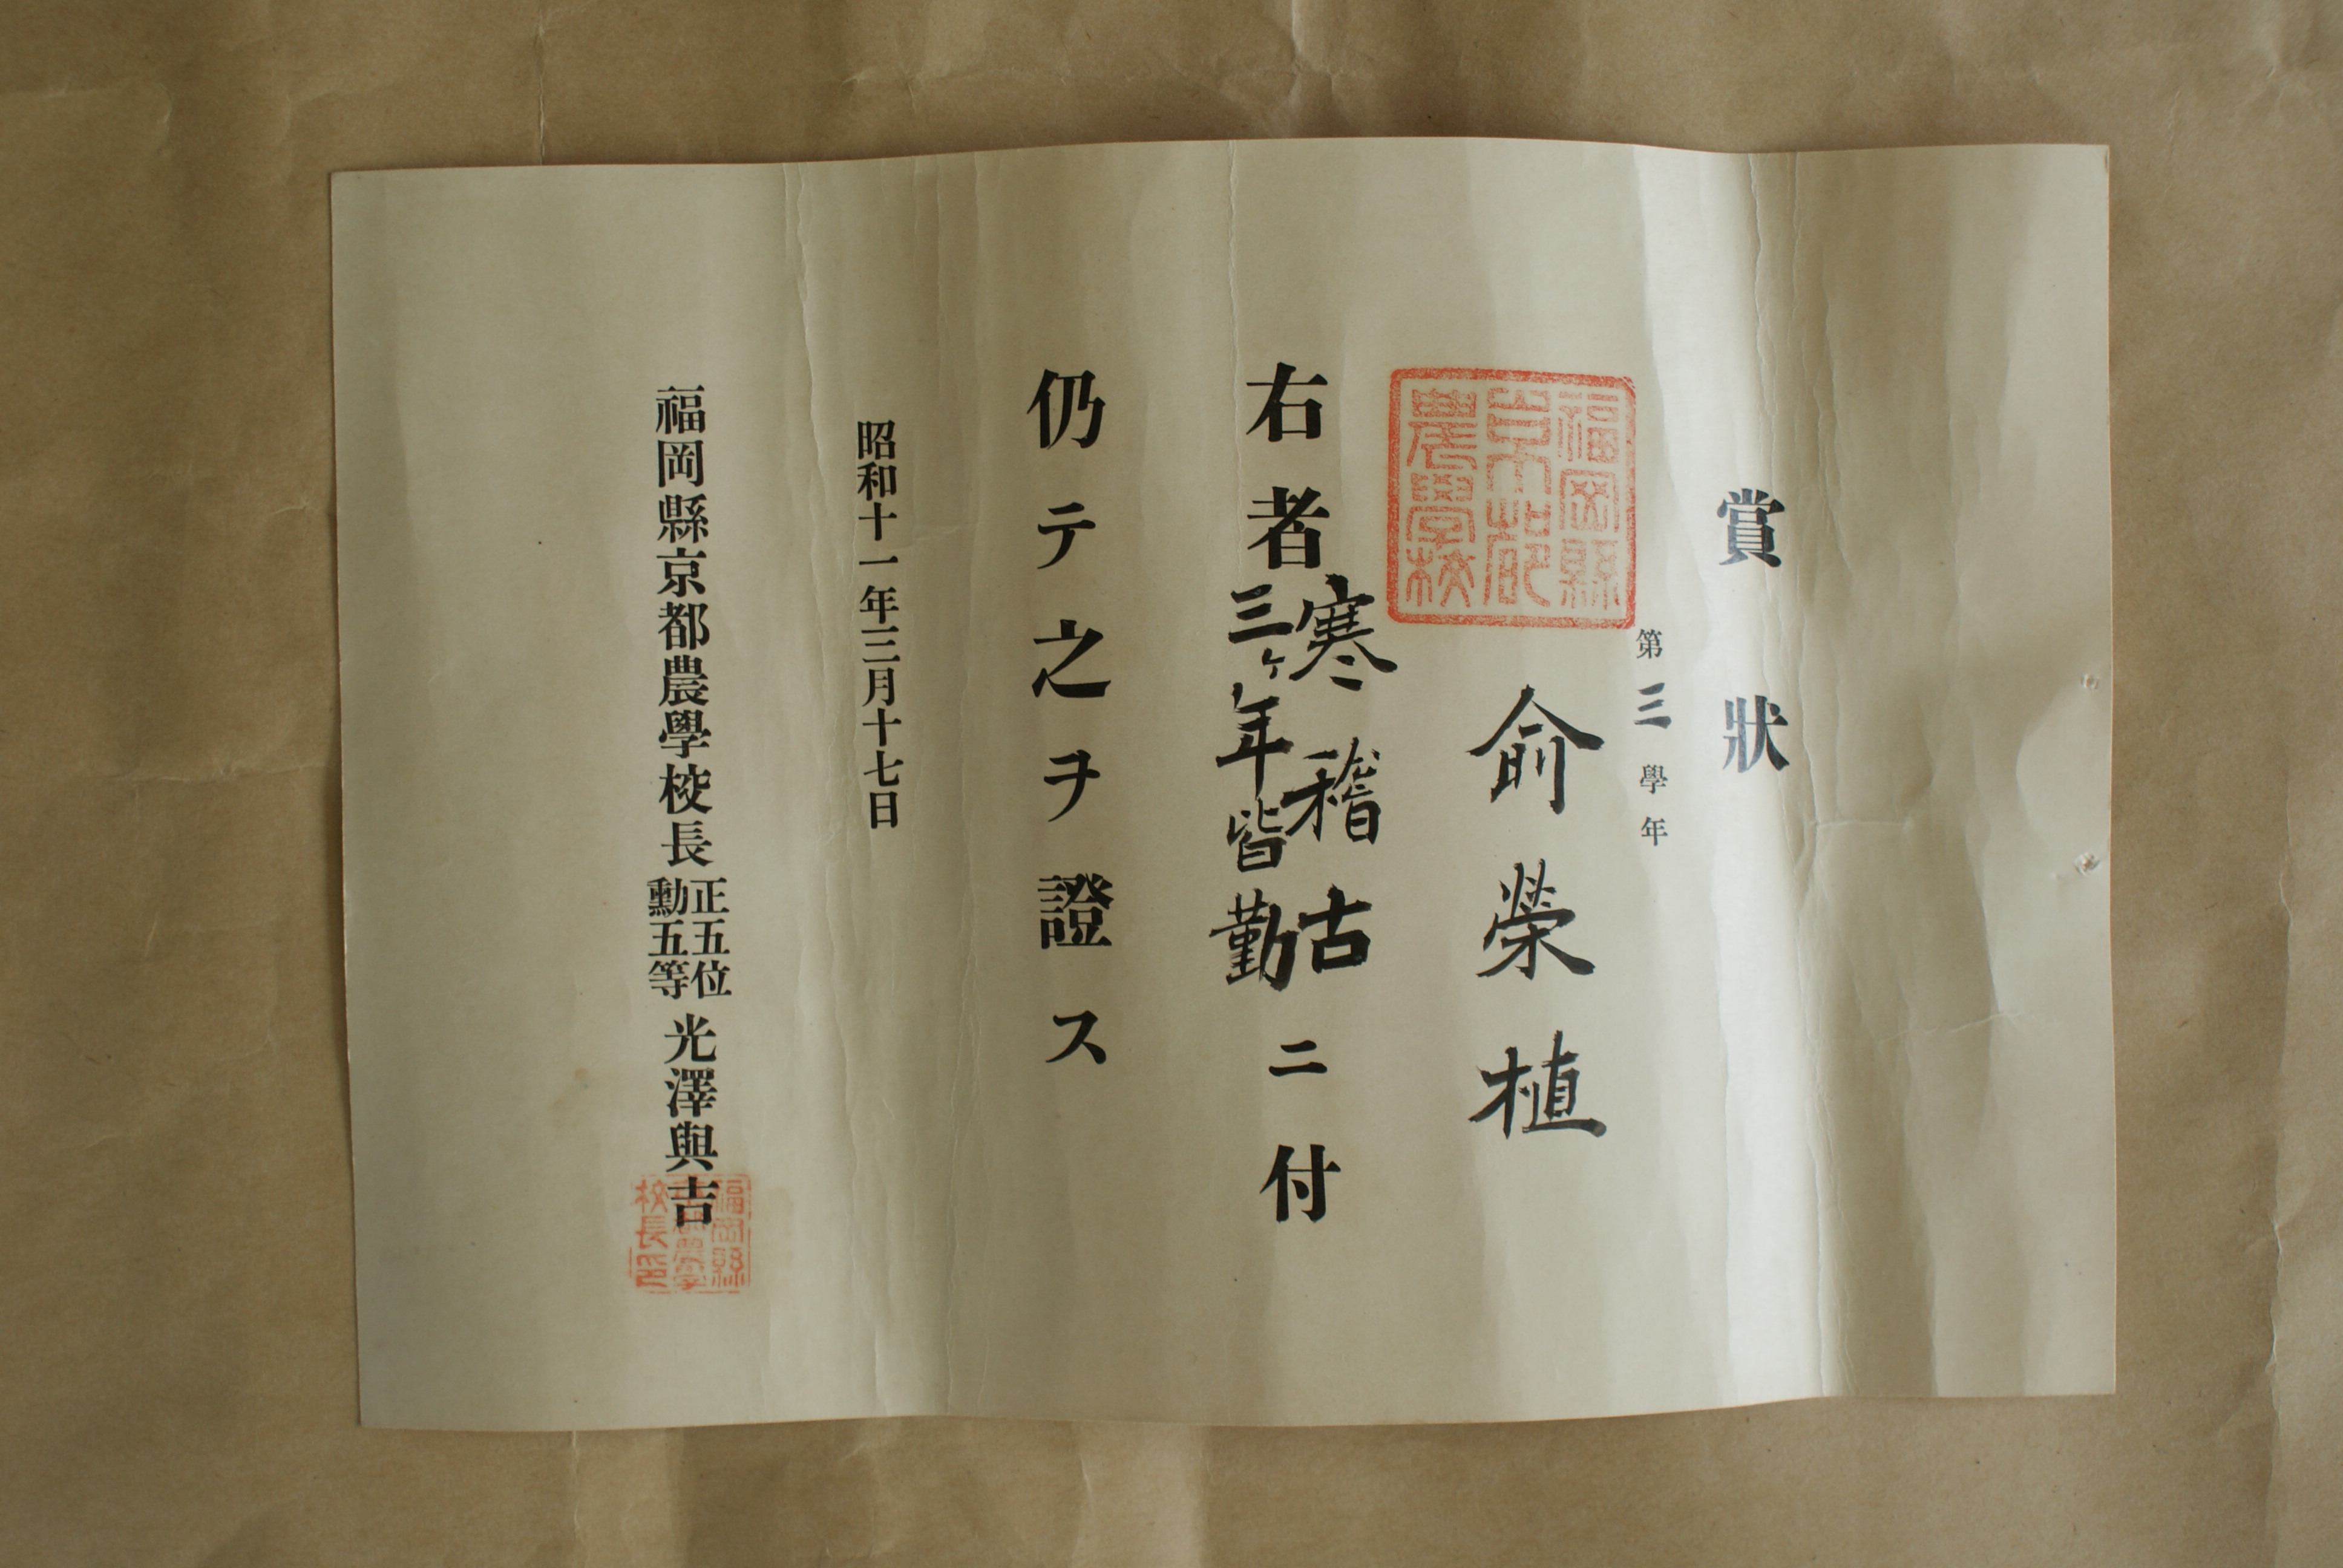 賞狀
第三學年
俞榮植
福岡縣
京都
農學校
右者寒稽古三ヶ年皆勤ニ付
仍テ之ヲ證ス
昭和十一年三月十七日
福岡縣京都農學校長正五位勳五等光澤與吉
福岡縣
京都農學
校長印